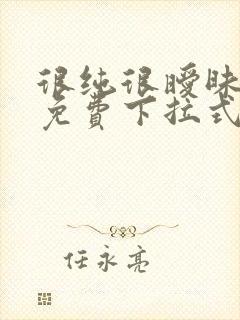 很纯很暧昧
免費下拉式
任永亮